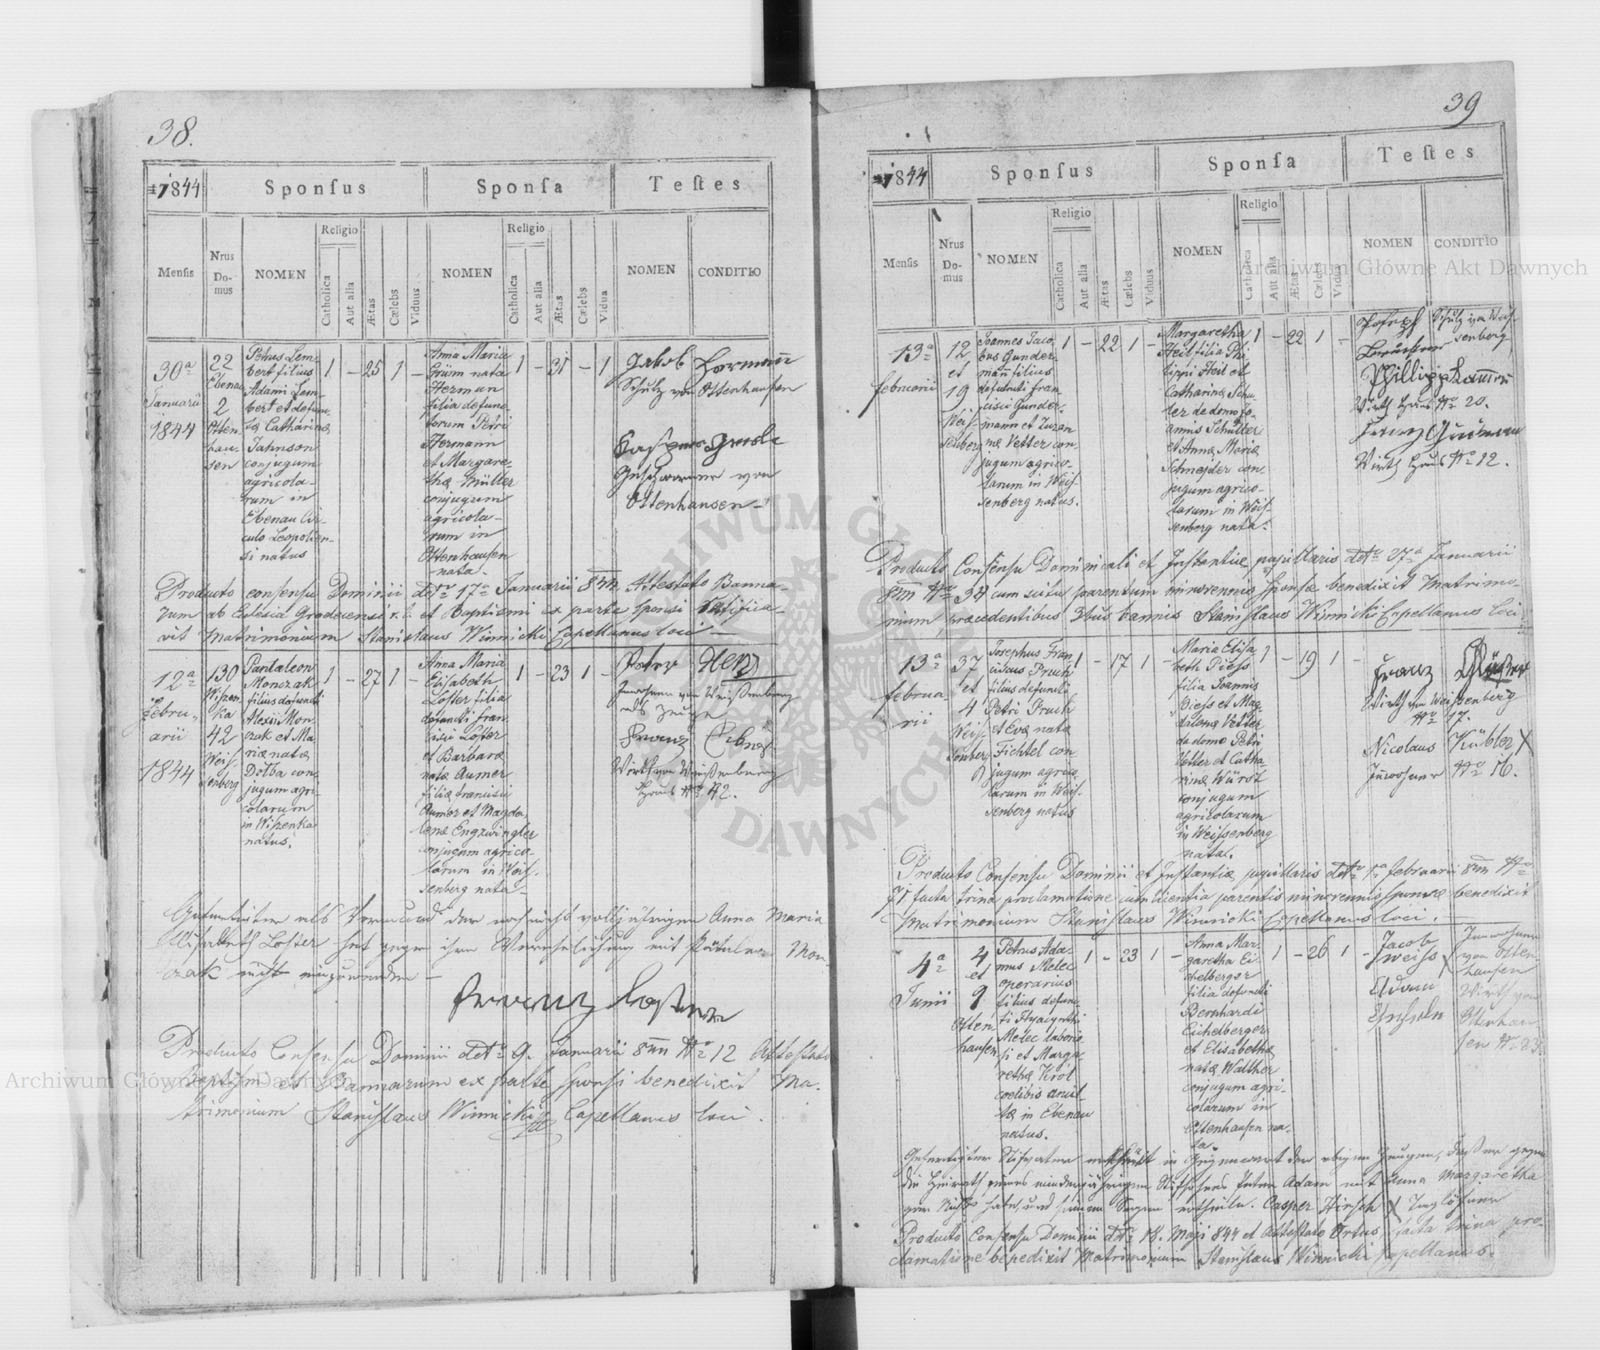 38.
1844
Sponsus
Sponsa
Testes
Mensis
Nrus Domus
NOMEN
Religio
Catholica
Aut alia
Ætas
Cælebs
Viduus
NOMEN
Religio
Catholica
Aut alia
Ætas
Cælebs
Vidua
NOMEN
CONDITIO
30a
Januarii
1844
22
Ebenau
2
Otten-
hau-
sen
Petrus Lem-
bert filius
Adami Lem-
bert et defunc-
tæ Catharinæ
Jahnson
conjugum
agricola-
rum in
Ebenau Cir-
culo Leopolien-
si natus
1 - 25 1 -
Anna Maria
Grünn nata
Herman
filia defunc-
torum Petri
Hermann
et Margare-
thæ Müller
conjugum
agricola-
rum in
Ottenhausen
nata.
1 - 31 - 1
Jakob Hormann
Schulz von Ottenhausen
Geschworner von
Ottenhausen
Producto consensu Dominii dto 17a Januarii 844 Attestato Banno-
rum ab Ecclesia Grodecensi r. l. et Baptismi ex parte sponsi
vit Matrimonium Stanislaus Winnicki Capellanus loci
12a
Febru-
arii
1844
130
Wiszen-
ka
42
Weis-
senberg
Pantaleon
Monczak
filius defuncti
Alexii Mon-
czak et Ma-
riæ natæ
Dolba con-
jugum agri-
colarum
in Wiszenka
natus.
1 - 27 1 -
Anna Maria
Elisabeth
Loster filia
defuncti Fran-
cisci Loster
et Barbaræ
natæ Aumer
filiæ Francisci
Aumer et Magda-
lenæ Engzwingler
conjugum agrico-
larum in Weis-
senberg nata
1 - 23 1 -
Peter Henz
Inwohner von Weißenberg
als Zeuge
Franz
Wirth von Weißenberg
Haus No 42.
Gefertigter als Vormund der noch nicht volljährigen Anna Maria
Elisabeth Loster hat gegen ihre Verehelichung mit Pantaleon Mon-
czak nicht einzuwenden
Franz Loster
Producto Consensu Dominii dto 9. Januarii 844 No 12 Attestato
Baptism. et Bannorum ex parte sponsi benedixit Ma-
trimonium Stanislaus Winnicki Capellanus loci.
39
1844
Sponsus
Sponsa
Testes
Mensis
Nrus Domus
NOMEN
Religio
Catholica
Aut alia
Ætas
Cælebs
Viduus
NOMEN
Religio
Catholica
Aut alia
Ætas
Cælebs
Vidua
NOMEN
CONDITIO
13a
februarii
12
et
19
Weis-
senberg
Joannes Jaco-
bus Gunder-
mann filius
defuncti Fran-
cisci Gunder-
mann et Suzan-
næ Vetter con-
jugum agrico-
larum in Weis-
senberg natus.
1 - 22 1 -
Margaretha
Heit filia Phi-
lippi Heit et
Catharinæ Schu-
ler de domo Jo-
annis Schuller
et Annæ Mariæ
Schneyder con-
jugum agrico-
larum in Weis-
senberg nata.
1 - 22 1 -
Joseph
Schulz von Weis-
senberg
Phillipp
Wirth Haus No 20.
Wirth Haus No 12.
Producto Consensu Dominicali et Instantiæ pupillaris dto 27a Januarii
844 No 34 cum scitu parentum minorennis sponsæ benedixit Matrimo-
nium præcedentibus 3bus bannis Stanislaus Winnicki Capellanus loci
13a
februa-
rii
37
et
4
Weis-
senberg
Josephus Fran-
ciscus Pruch
filius defuncti
Petri Pruch
et Evæ natæ
Fichtel con-
jugum agrico-
larum in Weis-
senberg natus
1 - 17 1 -
Maria Elisa-
beth Biess
filia Joannis
Biess et Mag-
dalenæ Vetter
de domo Petri
Vetter et Catha-
rinæ Würst
conjugum
agricolarum
in Weissenberg
nata.
1 - 19 1 -
Franz
Wirth von Weißenberg
No 17.
Nicolaus Kübler X
Inwohner No 16.
Producto Consensu Dominii et Instantiæ pupillaris dto 1a februarii 844 No
71 facta trina proclamatione cum licentia parentis minorennis sponsæ benedixit
Matrimonium Stanislaus Winnicki Capellanus loci.
4a
Junii
4
et
9
Otten-
hausen
Petrus Ada-
mus Melec
operarius
filius defunc-
ti Hyacynthi
Melec laborio-
si et Marga-
rethæ Król
cœlibis
in Ebenau
natus.
1 - 23 1 -
Anna Mar-
garetha Ei-
chelberger
filia defuncti
Bernhardi
Eichelberger
et Elisabethæ
natæ Walther
conjugum agri-
colarum in
Ottenhausen na-
ta.
1 - 26 1 -
Jacob
Weiss
Inwohner
von Otten-
hausen
Adam
Wirth von
Ottenhau-
sen No 23
Gefertigter Stifvater erklärt in Gegenwart der obigen Zeugen, daß er gegen
die Heirath seines minderjährigen Stifsohnes Peter Adam mit Anna Margaretha
gar Nichts habe, und seinen Segen ertheile. Casper Hirsch X Taglöhner
Producto Consensu Dominii dto 18. Maji 844 et Attestato Ortus, facta trina pro-
clamatione benedixit Matrimonium Stanislaus Winnicki Capellanus.
Archiwum Główne Akt Dawnych
Archiwum Główne Akt Dawnych
ARCHIWUM GŁÓWNE AKT DAWNYCH